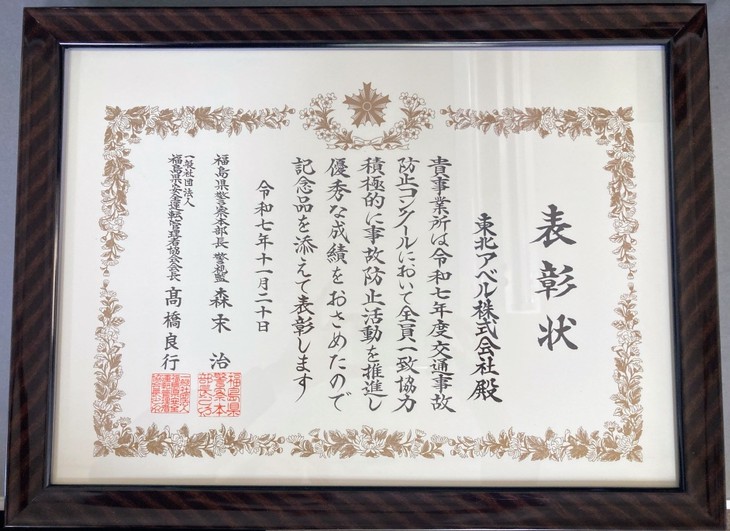 表彰状
東北アベル株式会社 殿
貴事業所は令和七年度交通事故
防止コンクールにおいて全員一致協力
積極的に事故防止活動を推進し
優秀な成績をおさめたので
記念品を添えて表彰します
令和七年十一月二十日
福島県警察本部長 警視監 森末 治
一般社団法人
福島県安全運転管理者協会会長 髙橋良行
福島県
警察本
部長之印